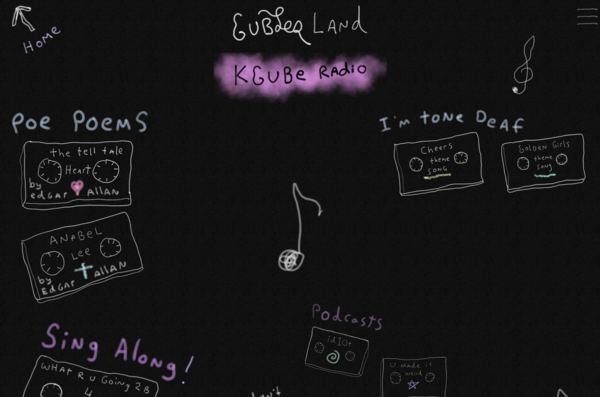 GUBLER LAND
HOME
KGUBE RADIO
POE POEMS
the tell tale
Heart
by
EDGAR ALLAN
ANABEL
LEE
by
EDGAR ALLAN
I'm TONE DEAF
Cheers
theme
SONG
Golden Girls
theme
Song
Podcasts
idiot
U made it
weird
Sing Along!
WHAT R U Going 2B
4